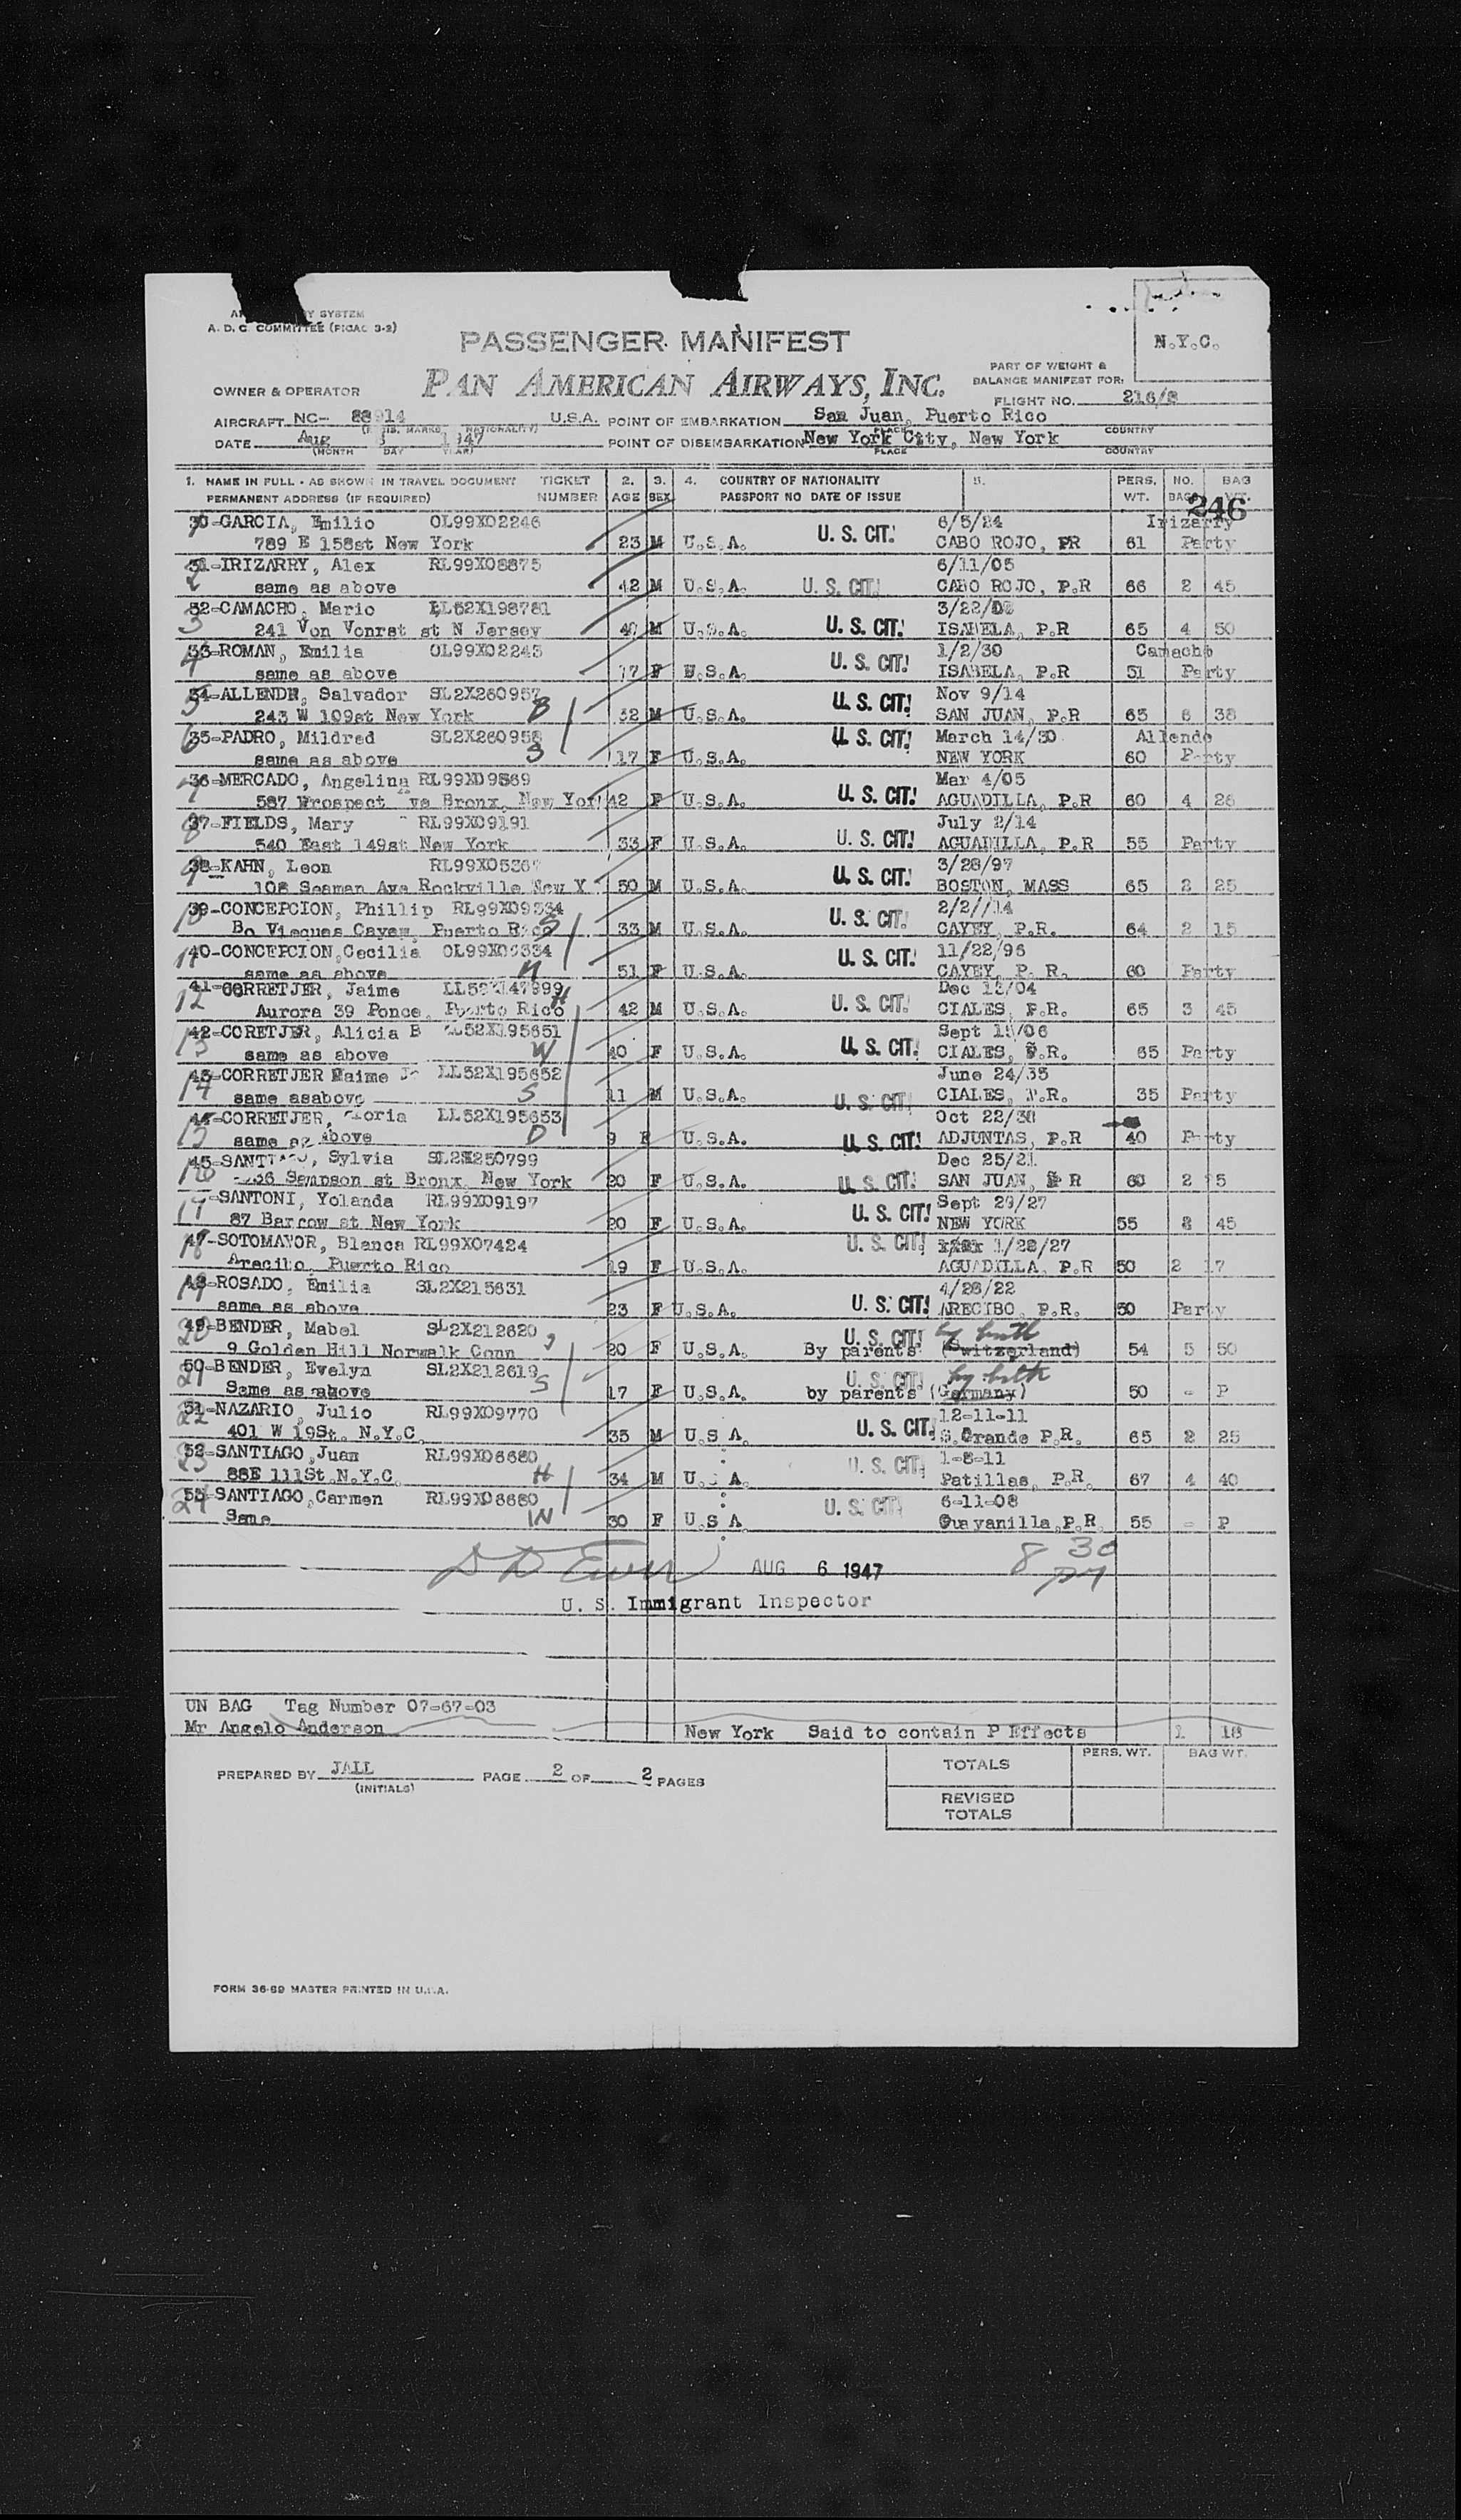 Y SYSTEM
A. D. C. COMMITTEE (PICAC 3-2)
PASSENGER MANIFEST
N.Y.C.
OWNER & OPERATOR PAN AMERICAN AIRWAYS, INC.
PART OF WEIGHT &
BALANCE MANIFEST FOR:
FLIGHT NO. 216/8
AIRCRAFT NC- 88914 U.S.A. POINT OF EMBARKATION San Juan, Puerto Rico
(REGIS. MARKS, NATIONALITY) PLACE COUNTRY
DATE Aug 1947 POINT OF DISEMBARKATION New York City, New York
(MONTH DAY YEAR) PLACE COUNTRY
1. NAME IN FULL - AS SHOWN IN TRAVEL DOCUMENT TICKET 2. 3. 4. COUNTRY OF NATIONALITY 5. PERS. NO. BAG
PERMANENT ADDRESS (IF REQUIRED) NUMBER AGE SEX PASSPORT NO DATE OF ISSUE WT. BAGS WT.
246
30-GARCIA, Emilio OL99X02246 6/5/24 Irizarry
789 E 158st New York 23 M U.S.A. U. S. CIT. CABO ROJO, PR 61 Party
31-IRIZARRY, Alex RL99X08875 6/11/05
2 same as above 42 M U.S.A. U. S. CIT. CABO ROJO, P.R 66 2 45
32-CAMACHO, Mario LL52X198781 3/22/
3 241 Von Vonrst st N Jersey 40 M U.S.A. U. S. CIT. ISABELA, P.R 65 4 50
33-ROMAN, Emilia OL99X02243 1/2/30 Camacho
4 same as above 17 F U.S.A. U. S. CIT. ISABELA, P.R 51 Party
34-ALLENDE, Salvador SL2X260957 Nov 9/14
5 243 W 109st New York B 32 M U.S.A. U. S. CIT. SAN JUAN, P.R 65 38
35-PADRO, Mildred SL2X260958 March 14/30 Allende
6 same as above S 17 F U.S.A. U. S. CIT. NEW YORK 60 Party
36-MERCADO, Angelina RL99X09569 Mar 4/05
7 587 Prospect ve Bronx, New Yor 42 F U.S.A. U. S. CIT. AGUADILLA, P.R 60 4 26
37-FIELDS, Mary RL99X09191 July 2/14
8 540 East 149st New York 33 F U.S.A. U. S. CIT. AGUADILLA, P.R 55 Party
38-KAHN, Leon RL99X05367 3/28/97
9 108 Seaman Ave Rockville New Y 50 M U.S.A. U. S. CIT. BOSTON, MASS 65 2 25
39-CONCEPCION, Phillip RL99X09334 2/2//14
10 Bo Vieques Cayey, Puerto Rico S 33 M U.S.A. U. S. CIT. CAYEY, P.R. 64 2 15
40-CONCEPCION,Cecilia 11/22/96
11 same as above M 51 F U.S.A. U. S. CIT. CAYEY, P. R. 60 Party
41-CORRETJER, Jaime Dec 12/04
12 Aurora 39 Ponce, Puerto Rico H 42 M U.S.A. U. S. CIT. CIALES, P.R. 65 3 45
42-CORETJER, Alicia B LL52X195651 Sept 15/06
13 same as above W 40 F U.S.A. U. S. CIT. CIALES, P.R. 65 Party
43-CORRETJER Jaime Jr LL52X195652 June 24/35
14 same asabove S 11 M U.S.A. U. S. CIT. CIALES, P.R. 35 Party
44-CORRETJER, Gloria LL52X195653 Oct 22/
15 same as above D 9 F U.S.A. U. S. CIT. ADJUNTAS, P.R 40 Party
45-SANTIAGO, Sylvia SL2X250799 Dec 25/21
16 Sampson st Bronx, New York 20 F U.S.A. U. S. CIT. SAN JUAN, P R 60 2 5
-SANTONI, Yolanda RL99X09197 Sept 29/27
17 87 Barrow st New York 20 F U.S.A. U. S. CIT. NEW YORK 55 45
47-SOTOMAYOR, Blanca RL99X07424 1/28/27
18 Arecibo, Puerto Rico 19 F U.S.A. U. S. CIT. AGUADILLA, P.R 50 2 17
48-ROSADO, Emilia SL2X215631 4/26/22
19 same as above 23 F U.S.A. U. S. CIT. ARECIBO, P.R. 50 Party
49-BENDER, Mabel SL2X212620 by birth
20 9 Golden Hill Norwalk Conn S 20 F U.S.A. U. S. CIT. By parents (Switzerland) 54 5 50
50-BENDER, Evelyn SL2X212619 by birth
21 Same as above S 17 F U.S.A. U. S. CIT. by parents (Germany) 50 - P
51-NAZARIO, Julio RL99X09770 12-11-11
22 401 W 19St. N.Y.C. 35 M U.S A. U. S. CIT. Grande P.R. 65 2 25
52-SANTIAGO,Juan RL99X06680 1-8-11
23 88E 111St.N.Y.C. H 34 M U. A. U. S. CIT. Patillas, P.R. 67 4 40
53-SANTIAGO,Carmen RL99X06680 6-11-08
24 Same W 30 F U.S A U. S. CIT. Guayanilla,P.R. 55 - P
AUG 6 1947 8 30 PM
U. S. Immigrant Inspector
UN BAG Tag Number 07-67-03
Mr Angelo Anderson New York Said to contain P Effects 1 18
PREPARED BY JALL PAGE 2 OF 2 PAGES
(INITIALS)
PERS. WT. BAG WT.
TOTALS
REVISED
TOTALS
FORM 36-89 MASTER PRINTED IN U.S.A.